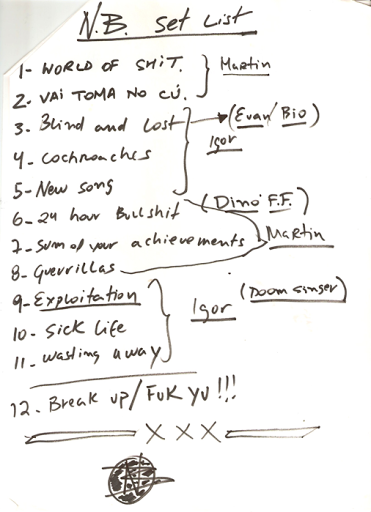 N.B. Set List
1- WORLD OF SHIT. Martin
2. VAI TOMA NO CÚ.
3- Blind and Lost (Evan/Bio)
Igor
4- Cochroaches
5- New song
6- 24 hour Bullshit (Dino F.F.)
7- Sum of your achievements Martin
8- Guerrillas
9- Exploitation Igor (Doom singer)
10- Sick Life
11- wasting away
12. Break up/Fuk yu!!!
XXX